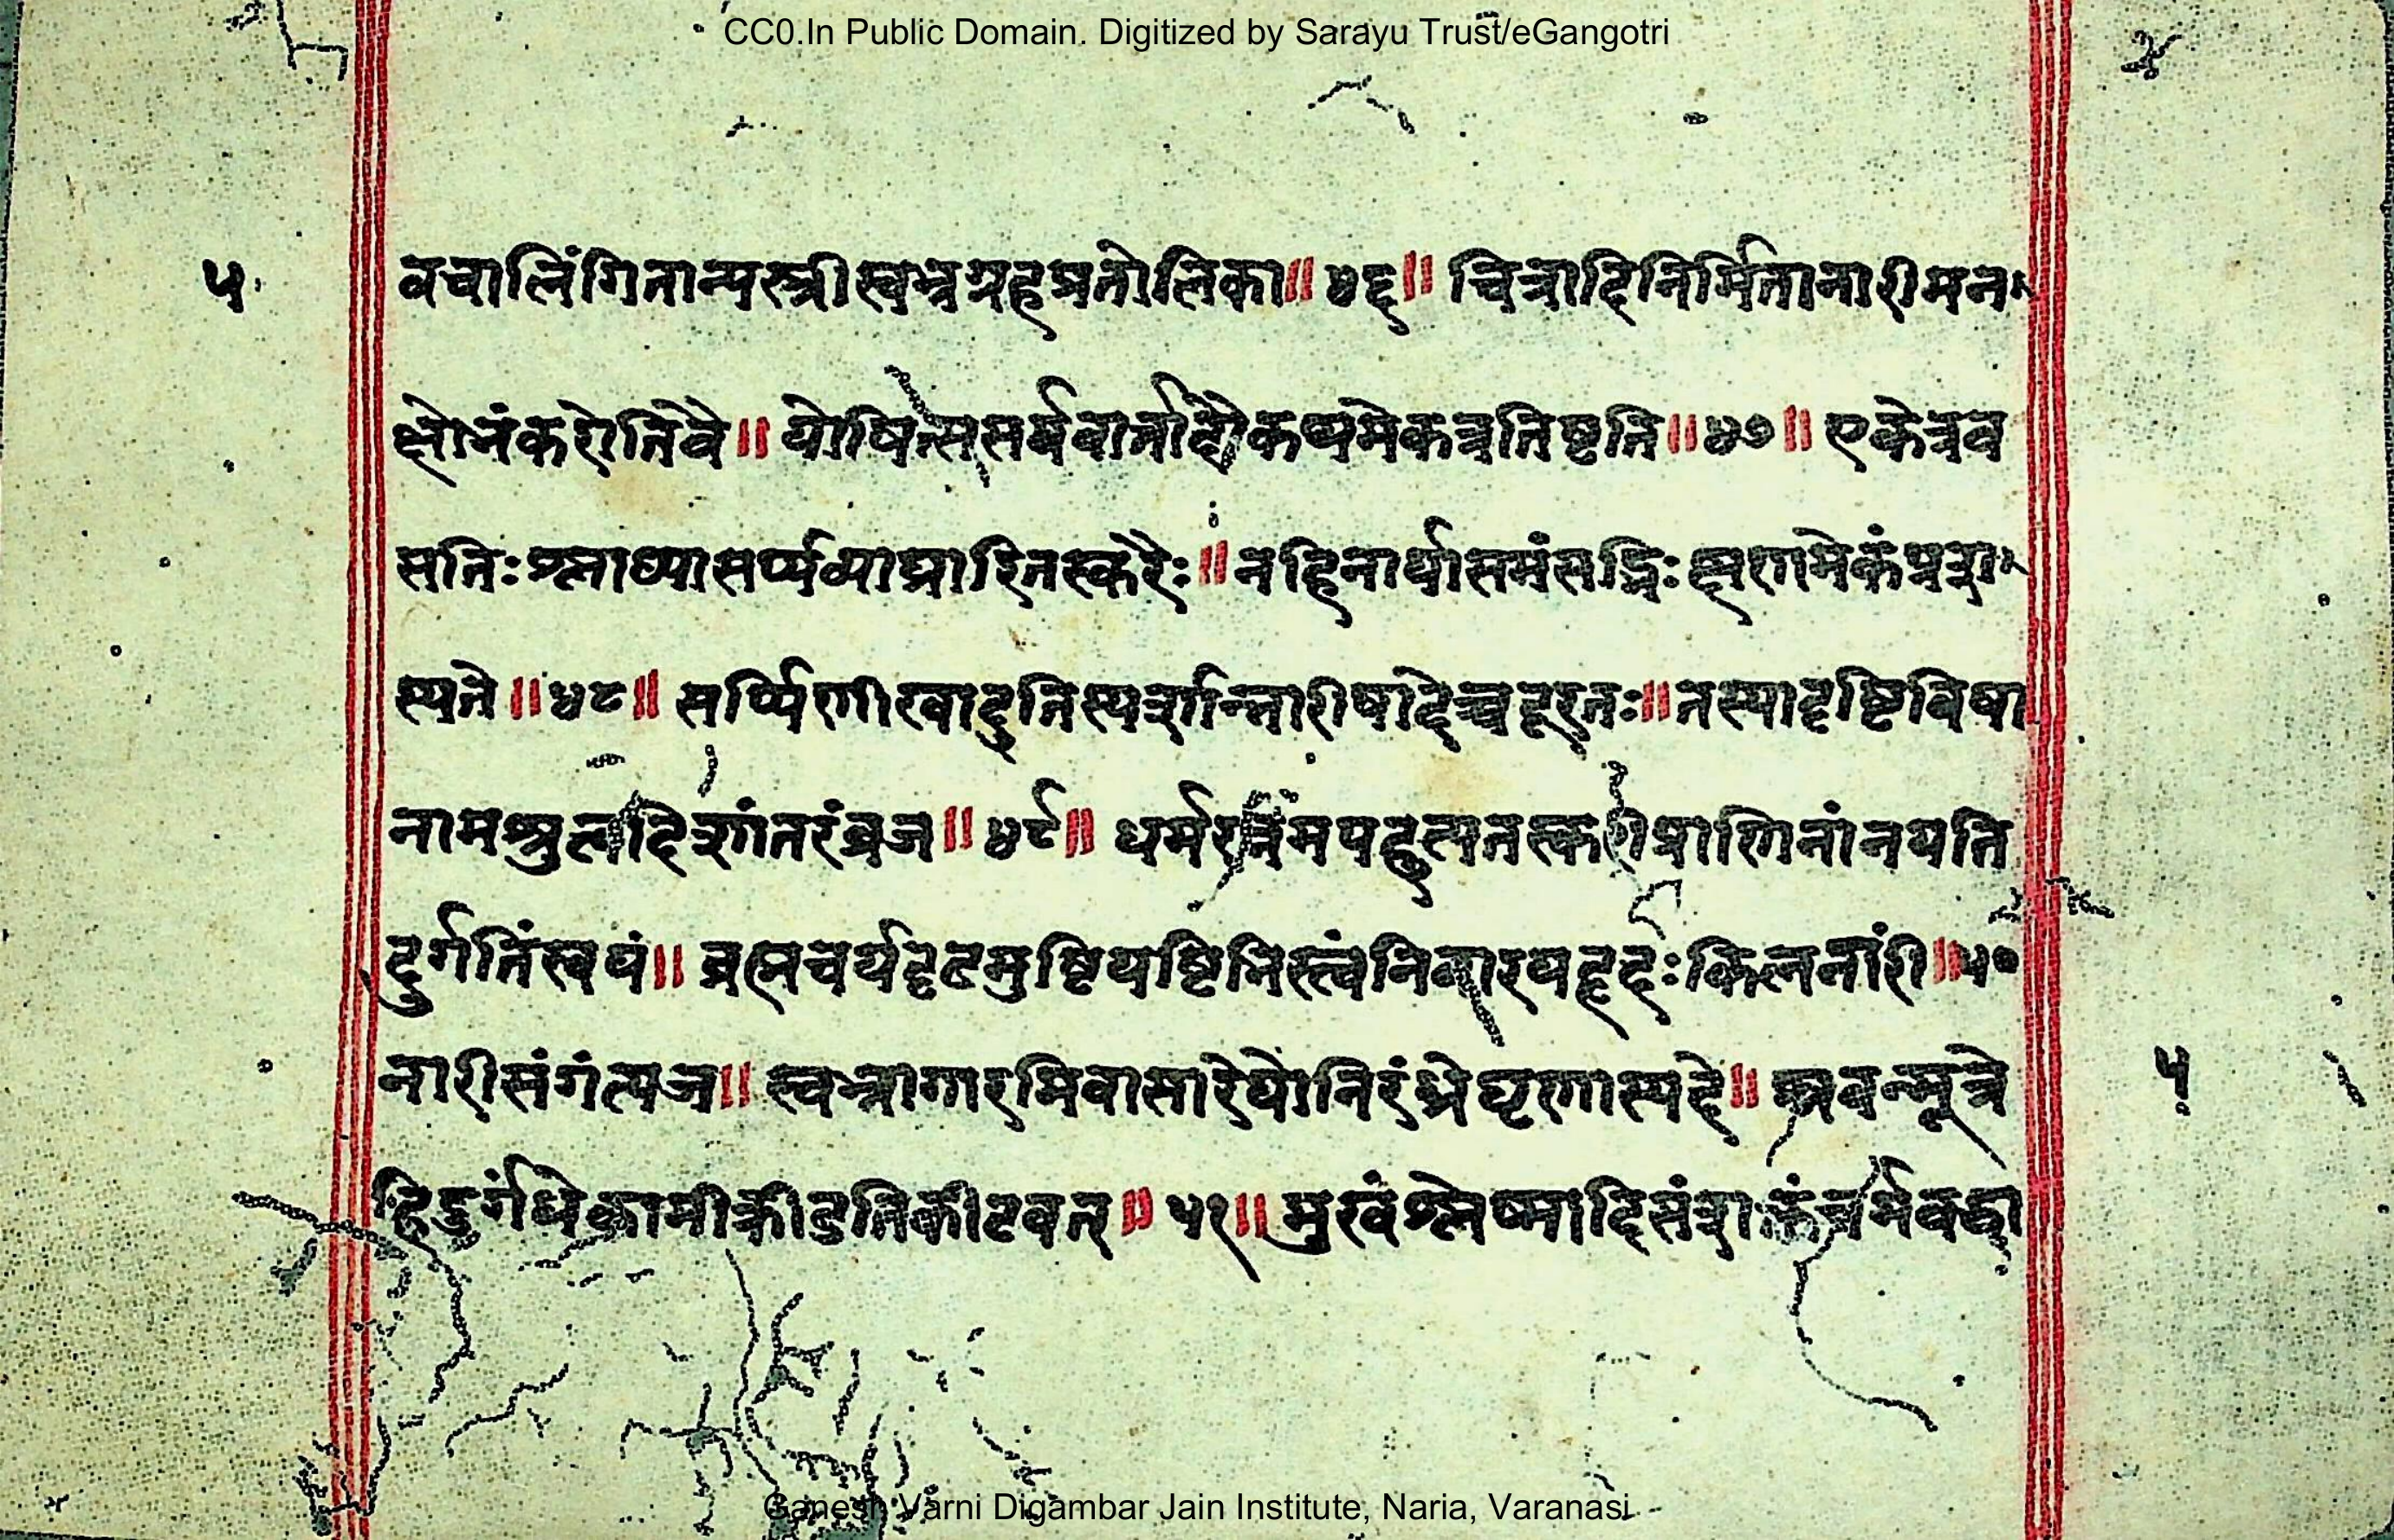 CC0.In Public Domain. Digitized by Sarayu Trust/eGangotri
५ वचालिंगितान्यस्त्रीस्वभ्रग्रहप्रतोलिका॥ ४६॥ चित्रादिनिर्मितानारीमन
क्षोभंकरोतिवै॥ योषित्ससर्पवार्तादौकथमेकत्रतिष्टति॥४७॥ एकेत्रव
सतिःश्लाघ्यासर्प्पव्याघ्रारितस्करैः॥नहिनार्यासमंसद्भिःक्षणमेकंप्रशं
स्यते॥४८॥ सर्प्पिणीरवादुतिस्पर्शान्नारीषादेच्चदूरतः॥तस्यादृष्टिविषा
नामश्रुत्वादिशांतरंव्रज॥४९॥ धर्मरत्नमपहृत्यतस्करीप्राणिनांनयति
दुर्गतिंस्वयं॥ ब्रह्मचर्यदृढमुष्टियष्टिभिस्त्वंनिवारयहृहःकिलनारीं॥५०
नारीसंगंत्यज॥ स्वभ्रागारमिवासारेयोनिरंध्रेघृणास्पदे॥ स्रवन्मूत्रे
हिदुर्गंधेकामीक्रीडतिकीटवत्॥ ५१॥मुखंश्लेष्मादिसंशक्तंचर्मवद्धा
५
Ganesh Varni Digambar Jain Institute, Naria, Varanasi